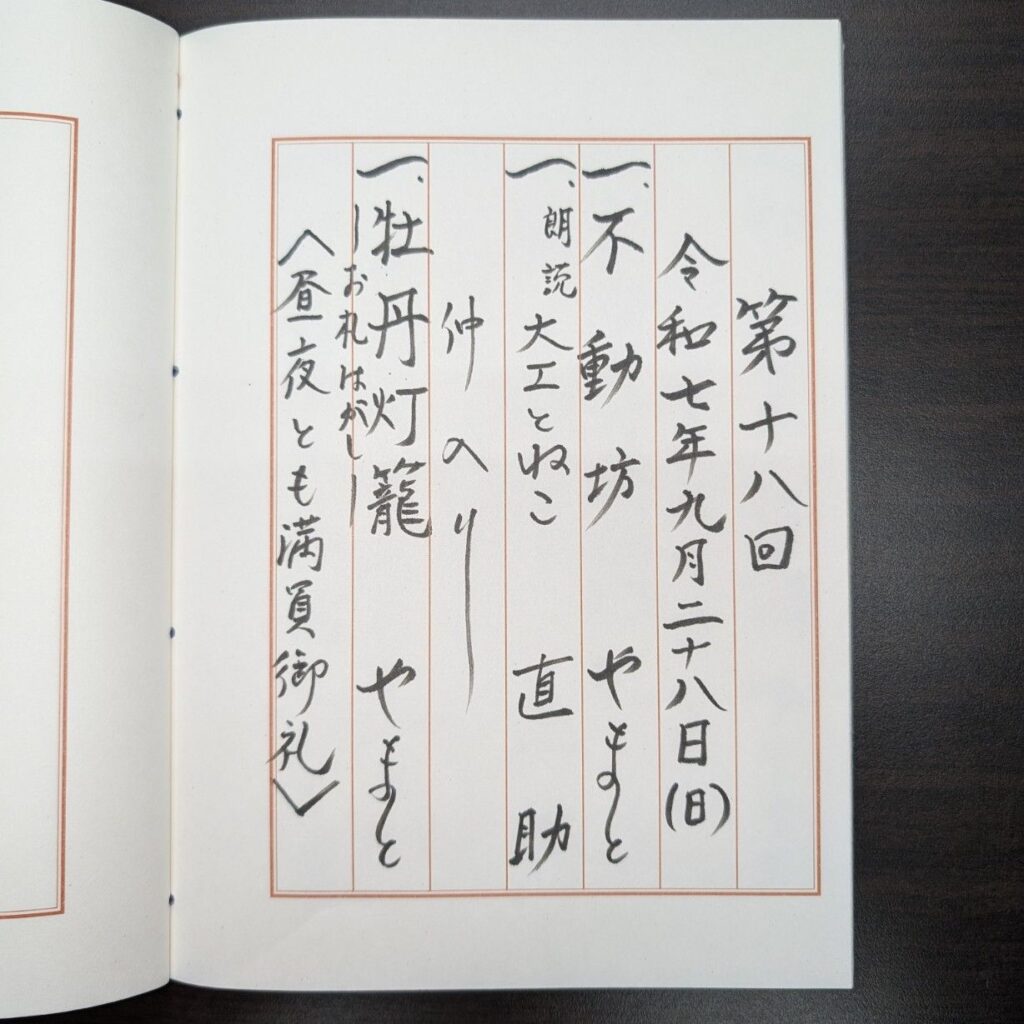 第十八回
令和七年九月二十八日(日)
一、不動坊 やまと
一、朗読 大工とねこ 直助
仲入り
一、牡丹灯籠 やまと
―お札はがし―
〈昼夜とも満員御礼〉